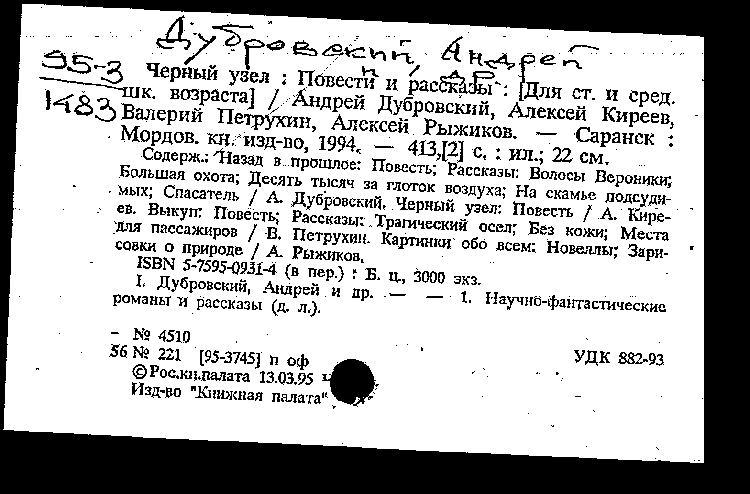 Дубровский, Андрей
и др.
95-3
1483
Черный узел : Повести и рассказы : [Для ст. и сред.
шк. возраста] / Андрей Дубровский, Алексей Киреев,
Валерий Петрухин, Алексей Рыжиков. — Саранск :
Мордов. кн. изд-во, 1994. — 413,[2] с. : ил.; 22 см.
Содерж.: Назад в прошлое: Повесть; Рассказы: Волосы Вероники;
Большая охота; Десять тысяч за глоток воздуха; На скамье подсуди-
мых; Спасатель / А. Дубровский. Черный узел: Повесть / А. Кире-
ев. Выкуп: Повесть; Рассказы: Трагический осел; Без кожи; Места
для пассажиров / В. Петрухин. Картинки обо всем: Новеллы; Зари-
совки о природе / А. Рыжиков.
ISBN 5-7595-0931-4 (в пер.) : Б. ц., 3000 экз.
I. Дубровский, Андрей и др. — — 1. Научно-фантастические
романы и рассказы (д. л.).
- № 4510
56 № 221 [95-3745] п оф
УДК 882-93
©Рос.кн.палата 13.03.95
Изд-во "Книжная палата"